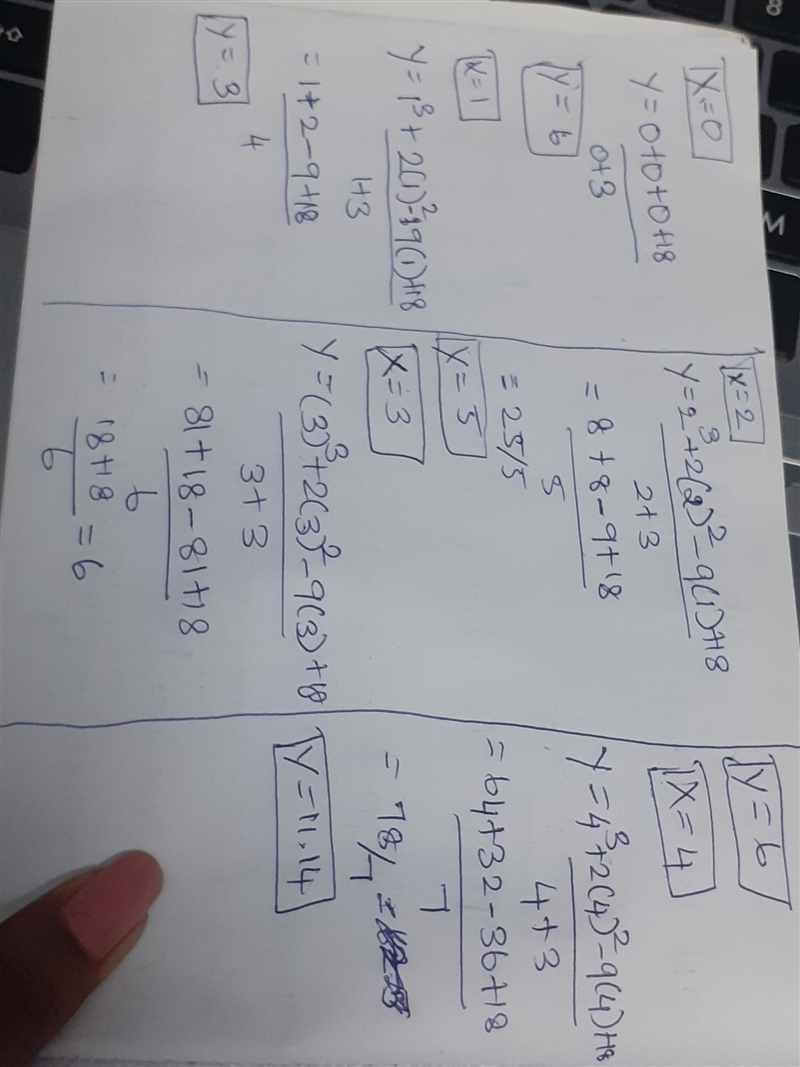 X=0
y = 0+0+0+18
0+3
y = 6
x=1
y = 1³ + 2(1)² - 9(1)+18
1+3
= 1+2-9+18
4
y = 3
x=2
y = 2³+2(2)² - 9(1)+18
2+3
= 8+8-9+18
5
= 25/5
y = 5
x = 3
y = (3)³+2(3)² - 9(3)+18
3+3
= 81+18-81+18
6
= 18+18 = 6
6
y = 6
x = 4
y = 4³+2(4)² - 9(4)+18
4+3
= 64+32-36+18
7
= 78/7 =
y = 11.14
M
8